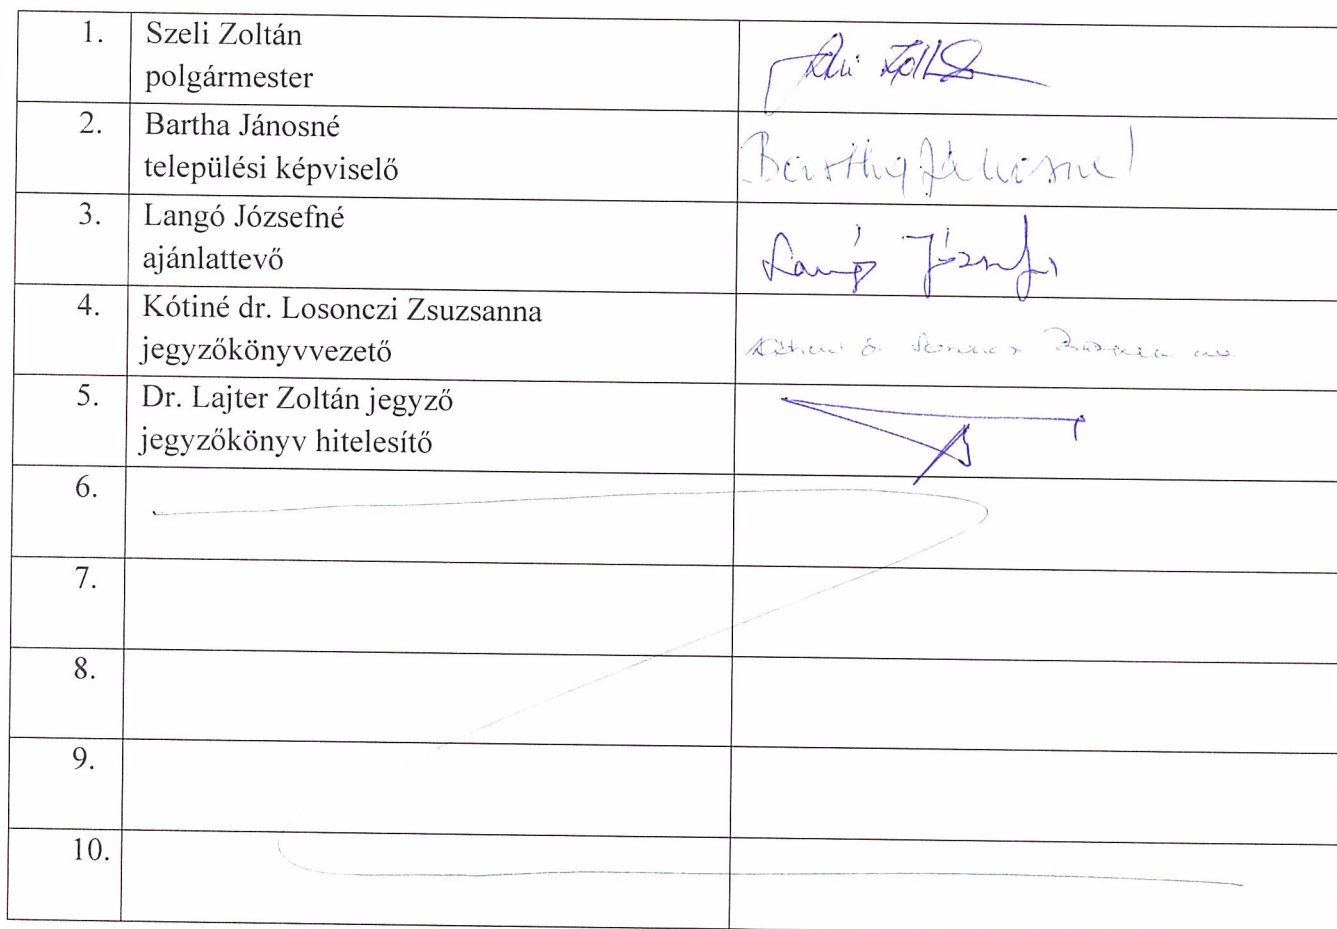 1. Szeli Zoltán
polgármester
2. Bartha Jánosné
települési képviselő
Bartha Jánosné
3. Langó Józsefné
ajánlattevő
Langó Józsefné
4. Kótiné dr. Losonczi Zsuzsanna
jegyzőkönyvvezető
5. Dr. Lajter Zoltán jegyző
jegyzőkönyv hitelesítő
6.
7.
8.
9.
10.